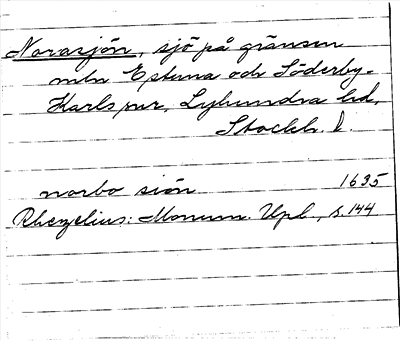 Norasjön, sjö på gränsen
mln Estuna och Söderby-
Karls snr, Lyhundra hd,
Stockh. l.
norbo siön 1635
Rhezelius: Monum. Upl., s. 144